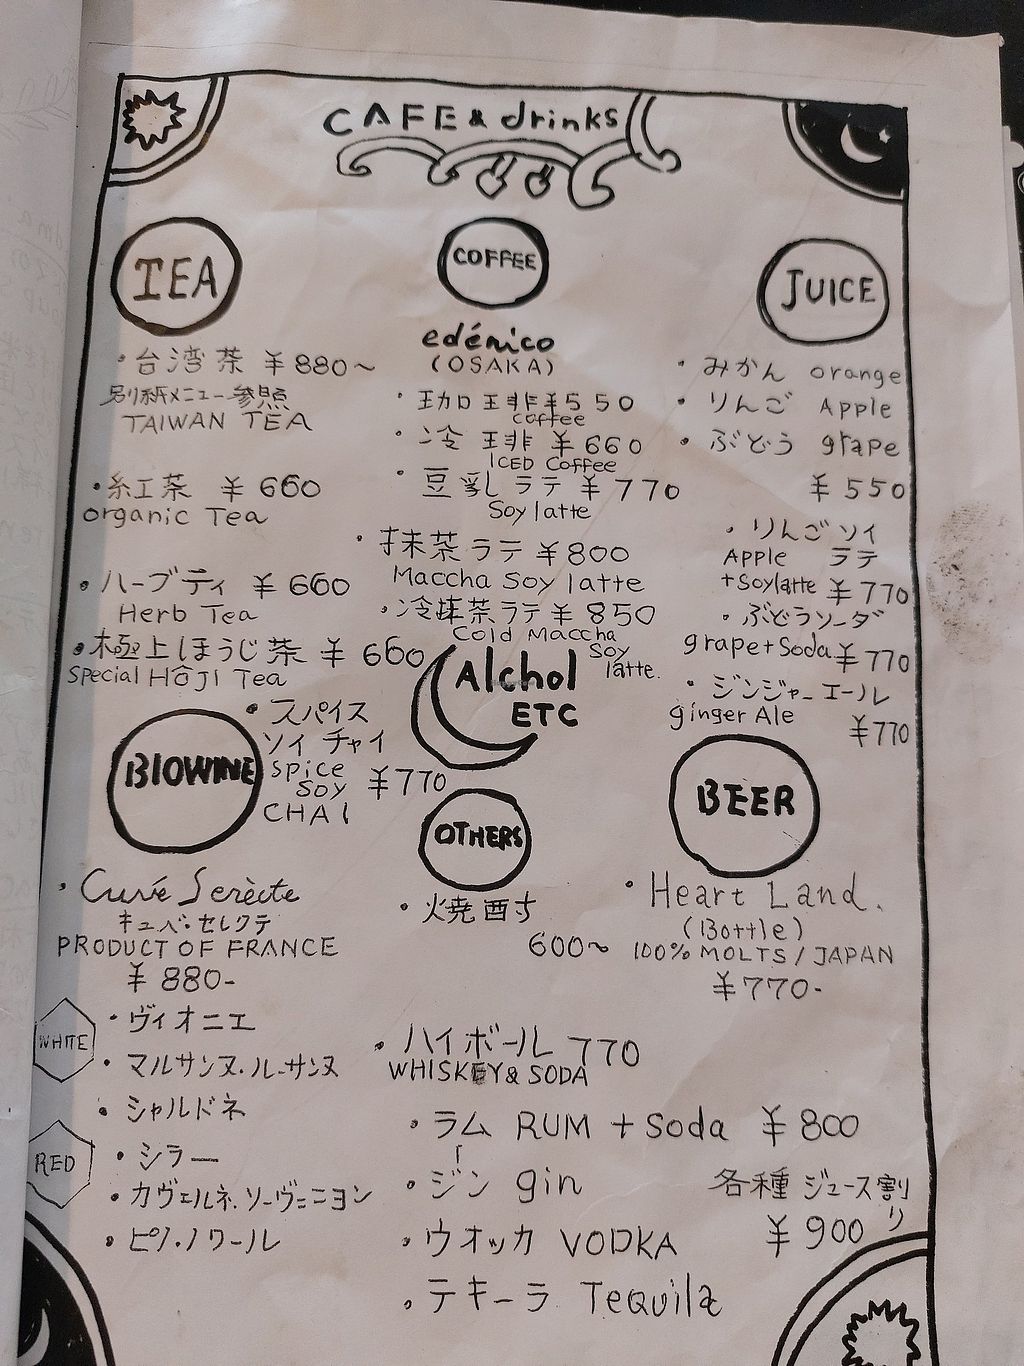 CAFE & drinks
TEA
・台湾茶 ¥880～
別紙メニュー参照
TAIWAN TEA
・紅茶 ¥660
organic Tea
・ハーブティ ¥660
Herb Tea
・極上ほうじ茶 ¥660
special HŌJI Tea
・スパイス
ソイ チャイ
spice
SOY ¥770
CHAI
COFFEE
edénico
(OSAKA)
・珈琲 ¥550
coffee
・冷琲 ¥660
ICED Coffee
・豆乳ラテ ¥770
Soy latte
・抹茶ラテ ¥800
Maccha Soy latte
・冷抹茶ラテ ¥850
Cold Maccha
Soy
latte.
JUICE
・みかん orange
・りんご Apple
・ぶどう grape
¥550
・りんごソイ
Apple ラテ
+Soylatte ¥770
・ぶどうソーダ
grape+Soda ¥770
・ジンジャーエール
ginger Ale
¥770
Alchol
ETC
BIOWINE
・Cuvé Serècte
キュベ・セレクテ
PRODUCT OF FRANCE
¥880-
WHITE
・ヴィオニエ
・マルサンヌ・ルーサンヌ
・シャルドネ
RED
・シラー
・カヴェルネ・ソーヴィニヨン
・ピノ・ノワール
OTHERS
・焼酎
600～
・ハイボール 770
WHISKEY & SODA
・ラム RUM + Soda ¥800
・ジン gin
・ウオッカ VODKA
・テキーラ Tequila
各種 ジュース割り
¥900
BEER
・Heart Land.
(Bottle)
100% MOLTS / JAPAN
¥770-